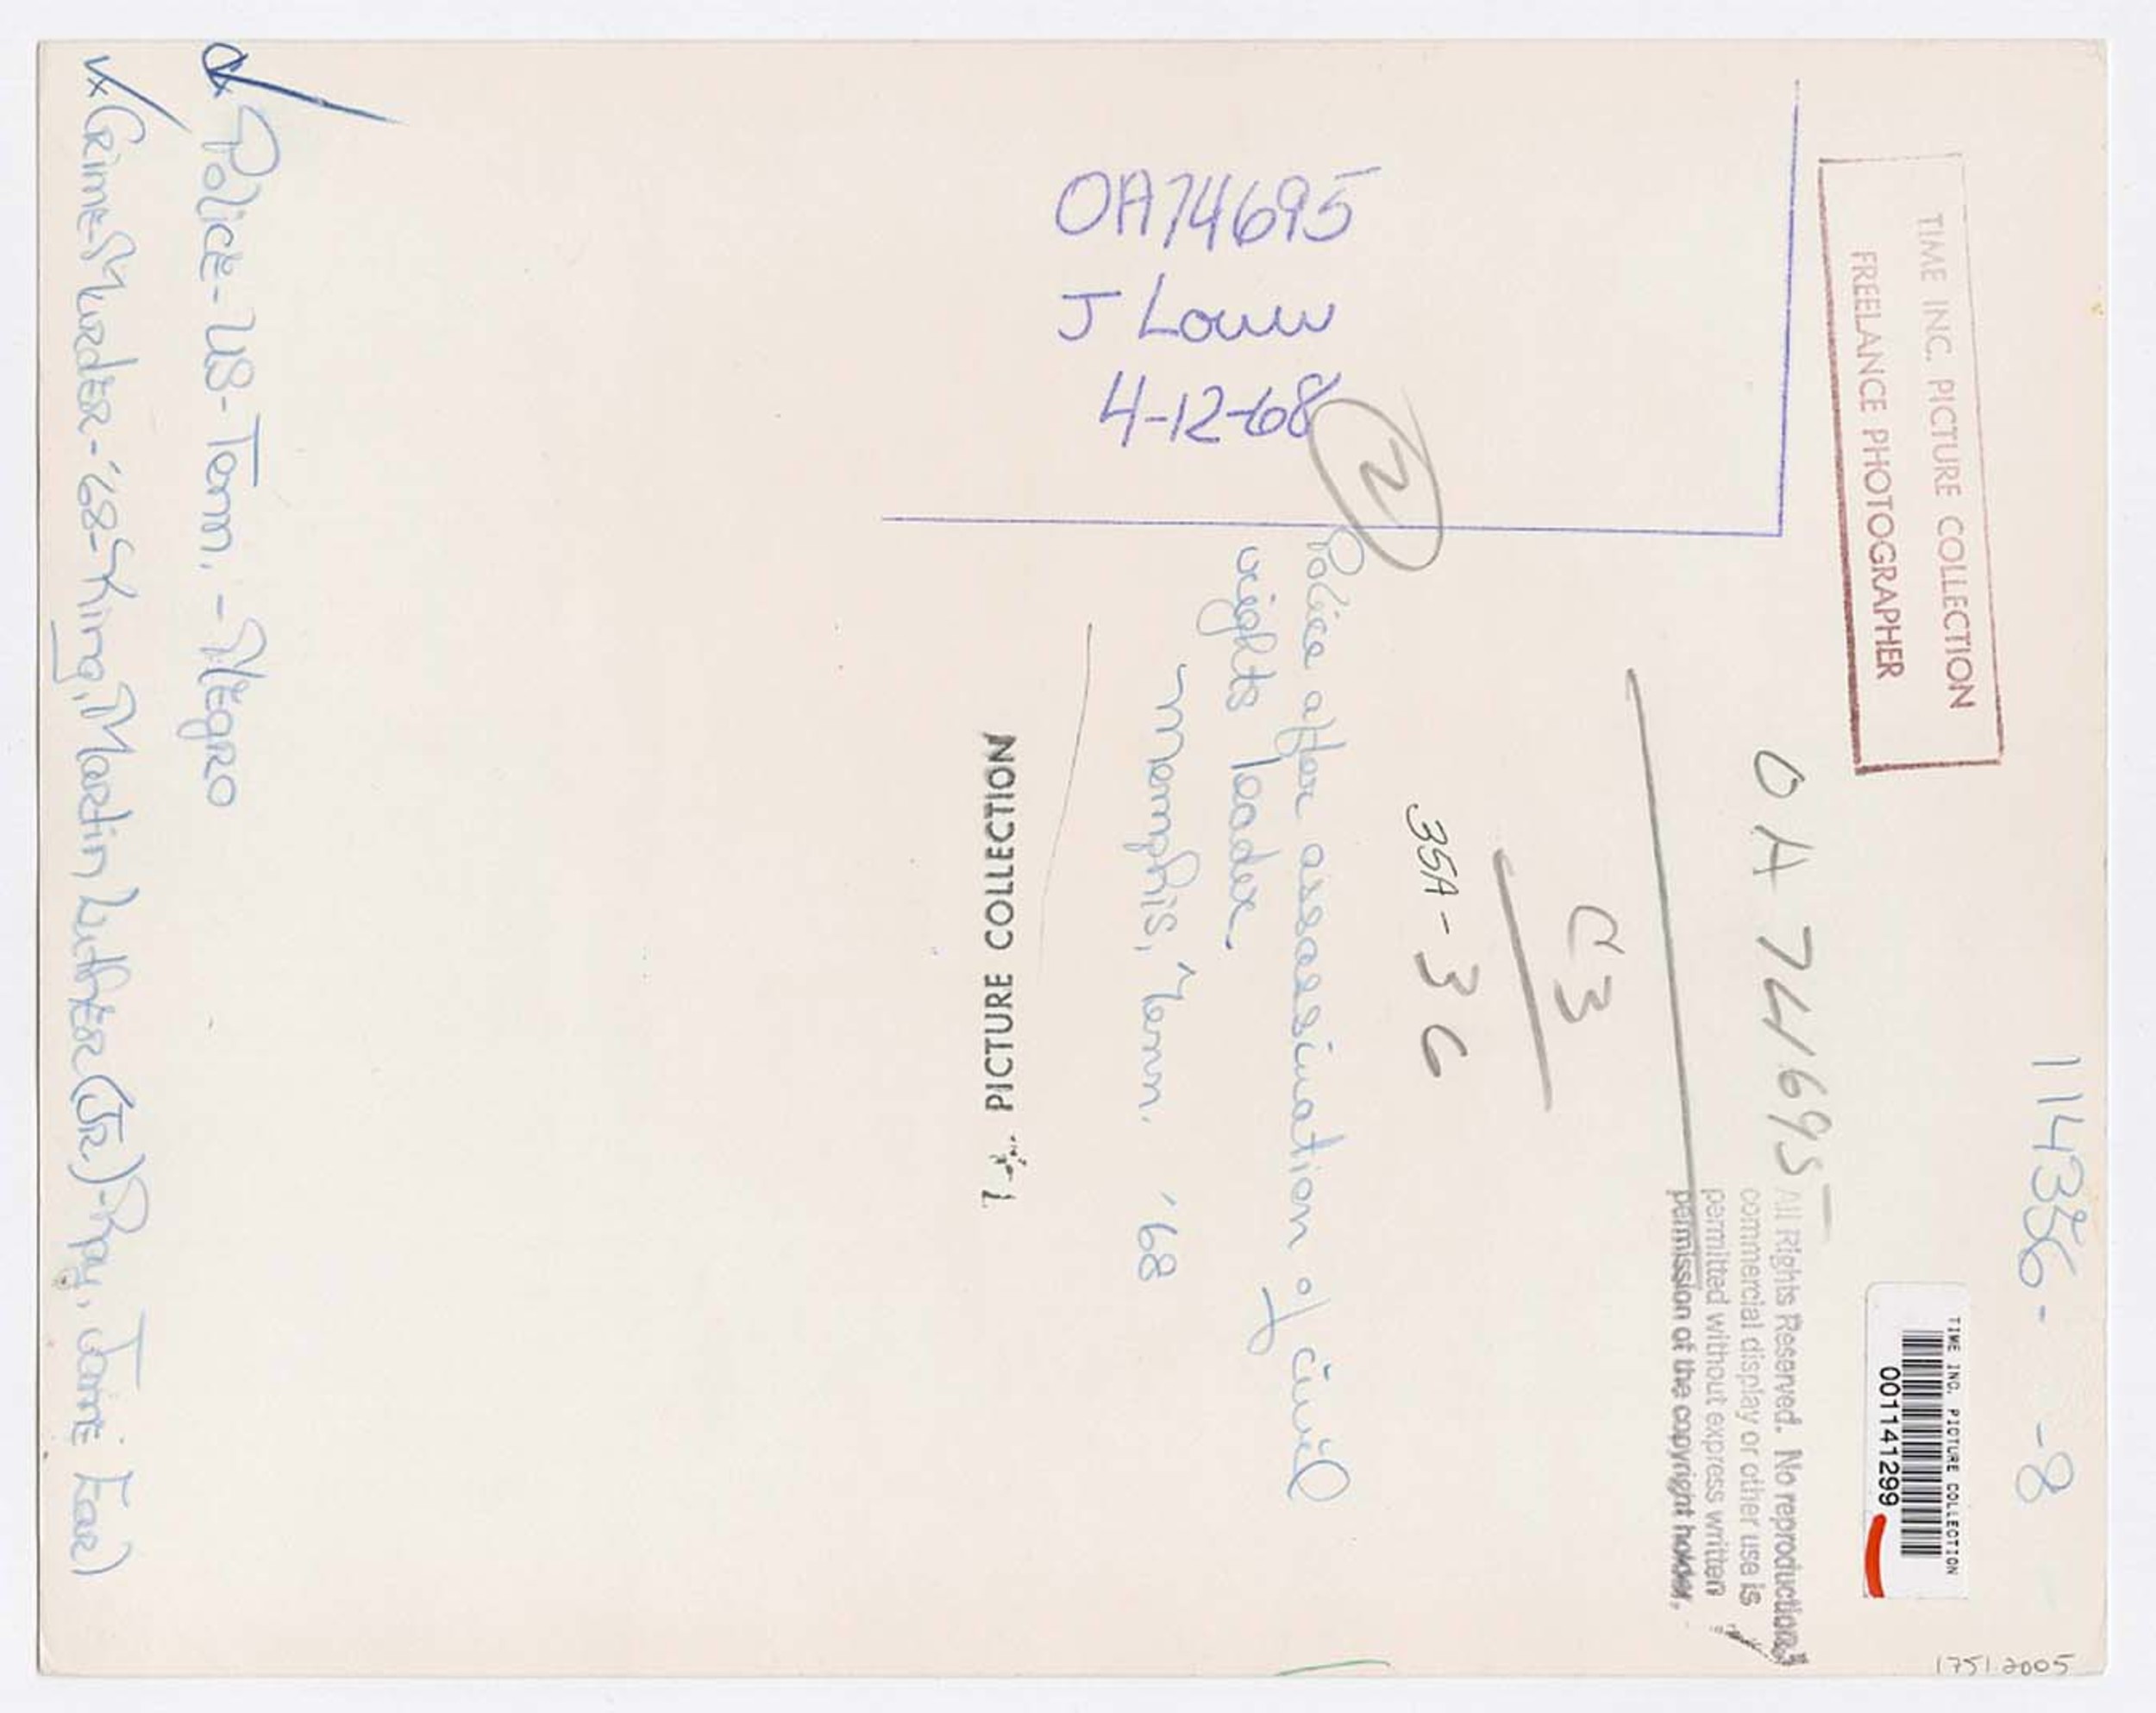 TIME INC. PICTURE COLLECTION
FREELANCE PHOTOGRAPHER
OA74695
J Louw
4-12-68
2
114356- -8
TIME INC. PICTURE COLLECTION
001141299
OA 74695
All Rights Reserved. No reproduction,
commercial display or other use is
permitted without express written
permission of the copyright holder.
C3
35A-36
Police after assassination of civil
rights leader.
Memphis, Tenn. '68
PICTURE COLLECTION
Police-US-Tenn.-Negro
Crime-Murder-'68-King, Martin Luther (Jr.)-Ray, James Earl)
1751.2005